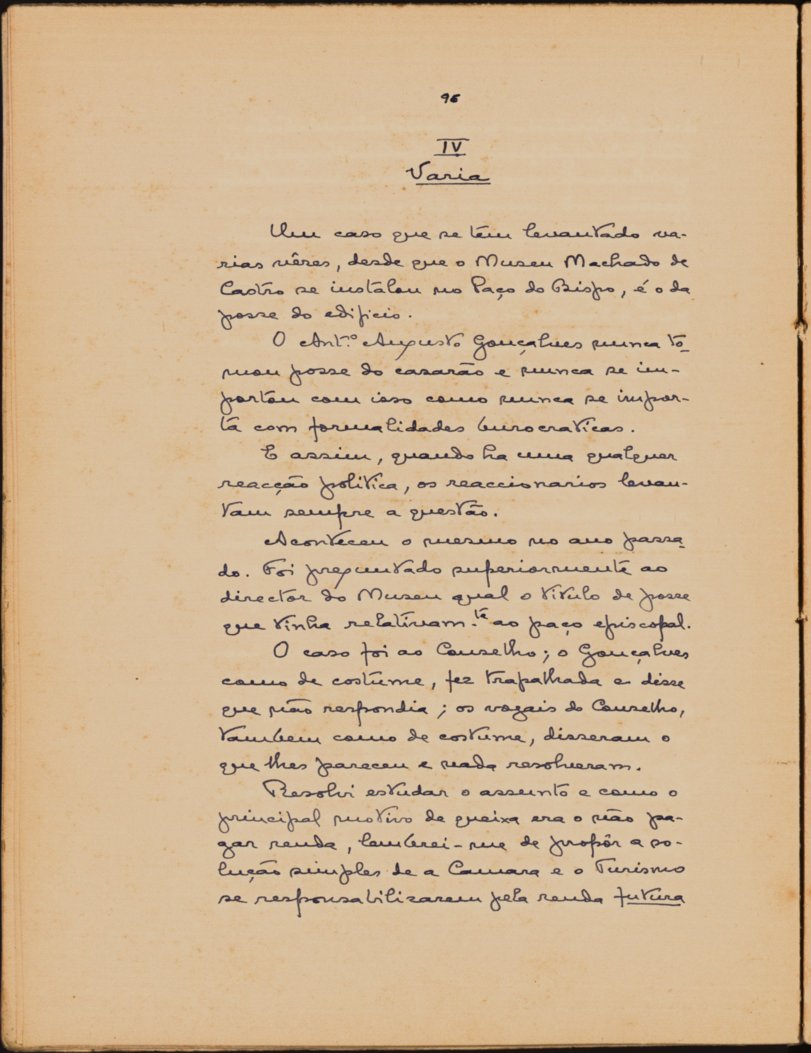 96
IV
Varia
Um caso que se têm levantado va-
rias vêses, desde que o Museu Machado de
Castro se instalou no Paço do Bispo, é o da
posse do edificio.
O Ant.º Augusto Gonçalves nunca to-
mou posse do casarão e nunca se im-
portou com isso como nunca se impor-
ta com formalidades burocraticas.
E assim, quando ha uma qualquer
reacção politica, os reaccionarios levan-
tam sempre a questão.
Aconteceu o mesmo no ano passa-
do. Foi preguntado superiormente ao
director do Museu qual o titulo de posse
que tinha relativam.te ao paço episcopal.
O caso foi ao Conselho; o Gonçalves
como de costume, fez trapalhada e disse
que não respondia; os vogais do Conselho,
tambem como de costume, disseram o
que lhes pareceu e nada resolveram.
Resolvi estudar o assunto e como o
principal motivo de queixa era o não pa-
gar renda, lembrei-me de propôr a so-
lução simples de a Camara e o Turismo
se responsabilizarem pela renda futura